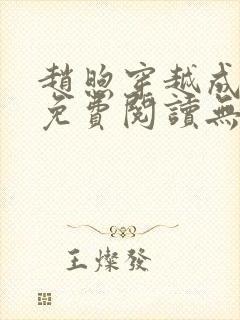 趙煦穿越成
免費閱讀無
王燦發